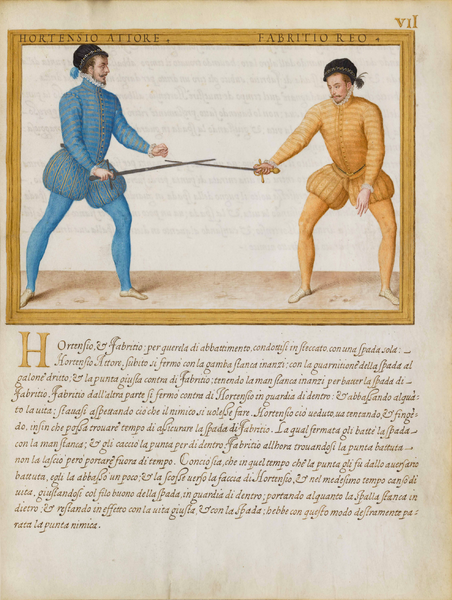 VII
HORTENSIO ATTORE. FABRITIO REO.
HOrtensio, & Fabritio; per querela di abbattimento, condottisi in steccato, con una spada sola:
Hortensio Attore, subito si fermò con la gamba stanca inanzi; con la guarnitione della spada al
galone dritto; & la punta giusta contra di Fabritio; tenendo la man stanca inanzi per batter la spada di
Fabritio. Fabritio dall'altra parte si fermò contra di Hortensio in guardia di dentro: & abbassando alquã
to la vita; stavasi aspettando ciò che il nimico si volesse fare. Hortensio ciò veduto, va tentando, & fingẽ
do, insin che possa trovare tempo di assicurare la spada di Fabritio. La qual fermata gli batte la spada
con la man stanca; & gli cacciò la punta per di dentro. Fabritio allhora trovandosi la punta battuta
non la lasciò però portare fuora di tempo. Conciosia, che in quel tempo chè la punta gli fu dallo aversario
battuta, egli la abbassò un poco; & la scosse verso la faccia di Hortensio, & nel medesimo tempo cansò di
vita, giustandosi col filo buono della spada, in guardia di dentro; portando alquanto la spalla stanca in
dietro; & restando in effetto con la vita giusta, & con la spada; hebbe con questo modo destramente pa-
rata la punta nimica.